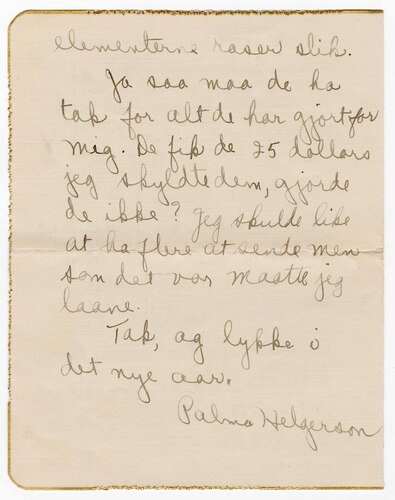 elementerne raser slik.
Ja saa maa de ha
tak for alt de har gjort for
mig. De fik de 25 dollars
jeg skyldte dem, gjorde
de ikke? Jeg skulde like
at ha flere at sende men
som det var maatte jeg
laane.
Tak, og lykke i
det nye aar.
Palma Helgerson